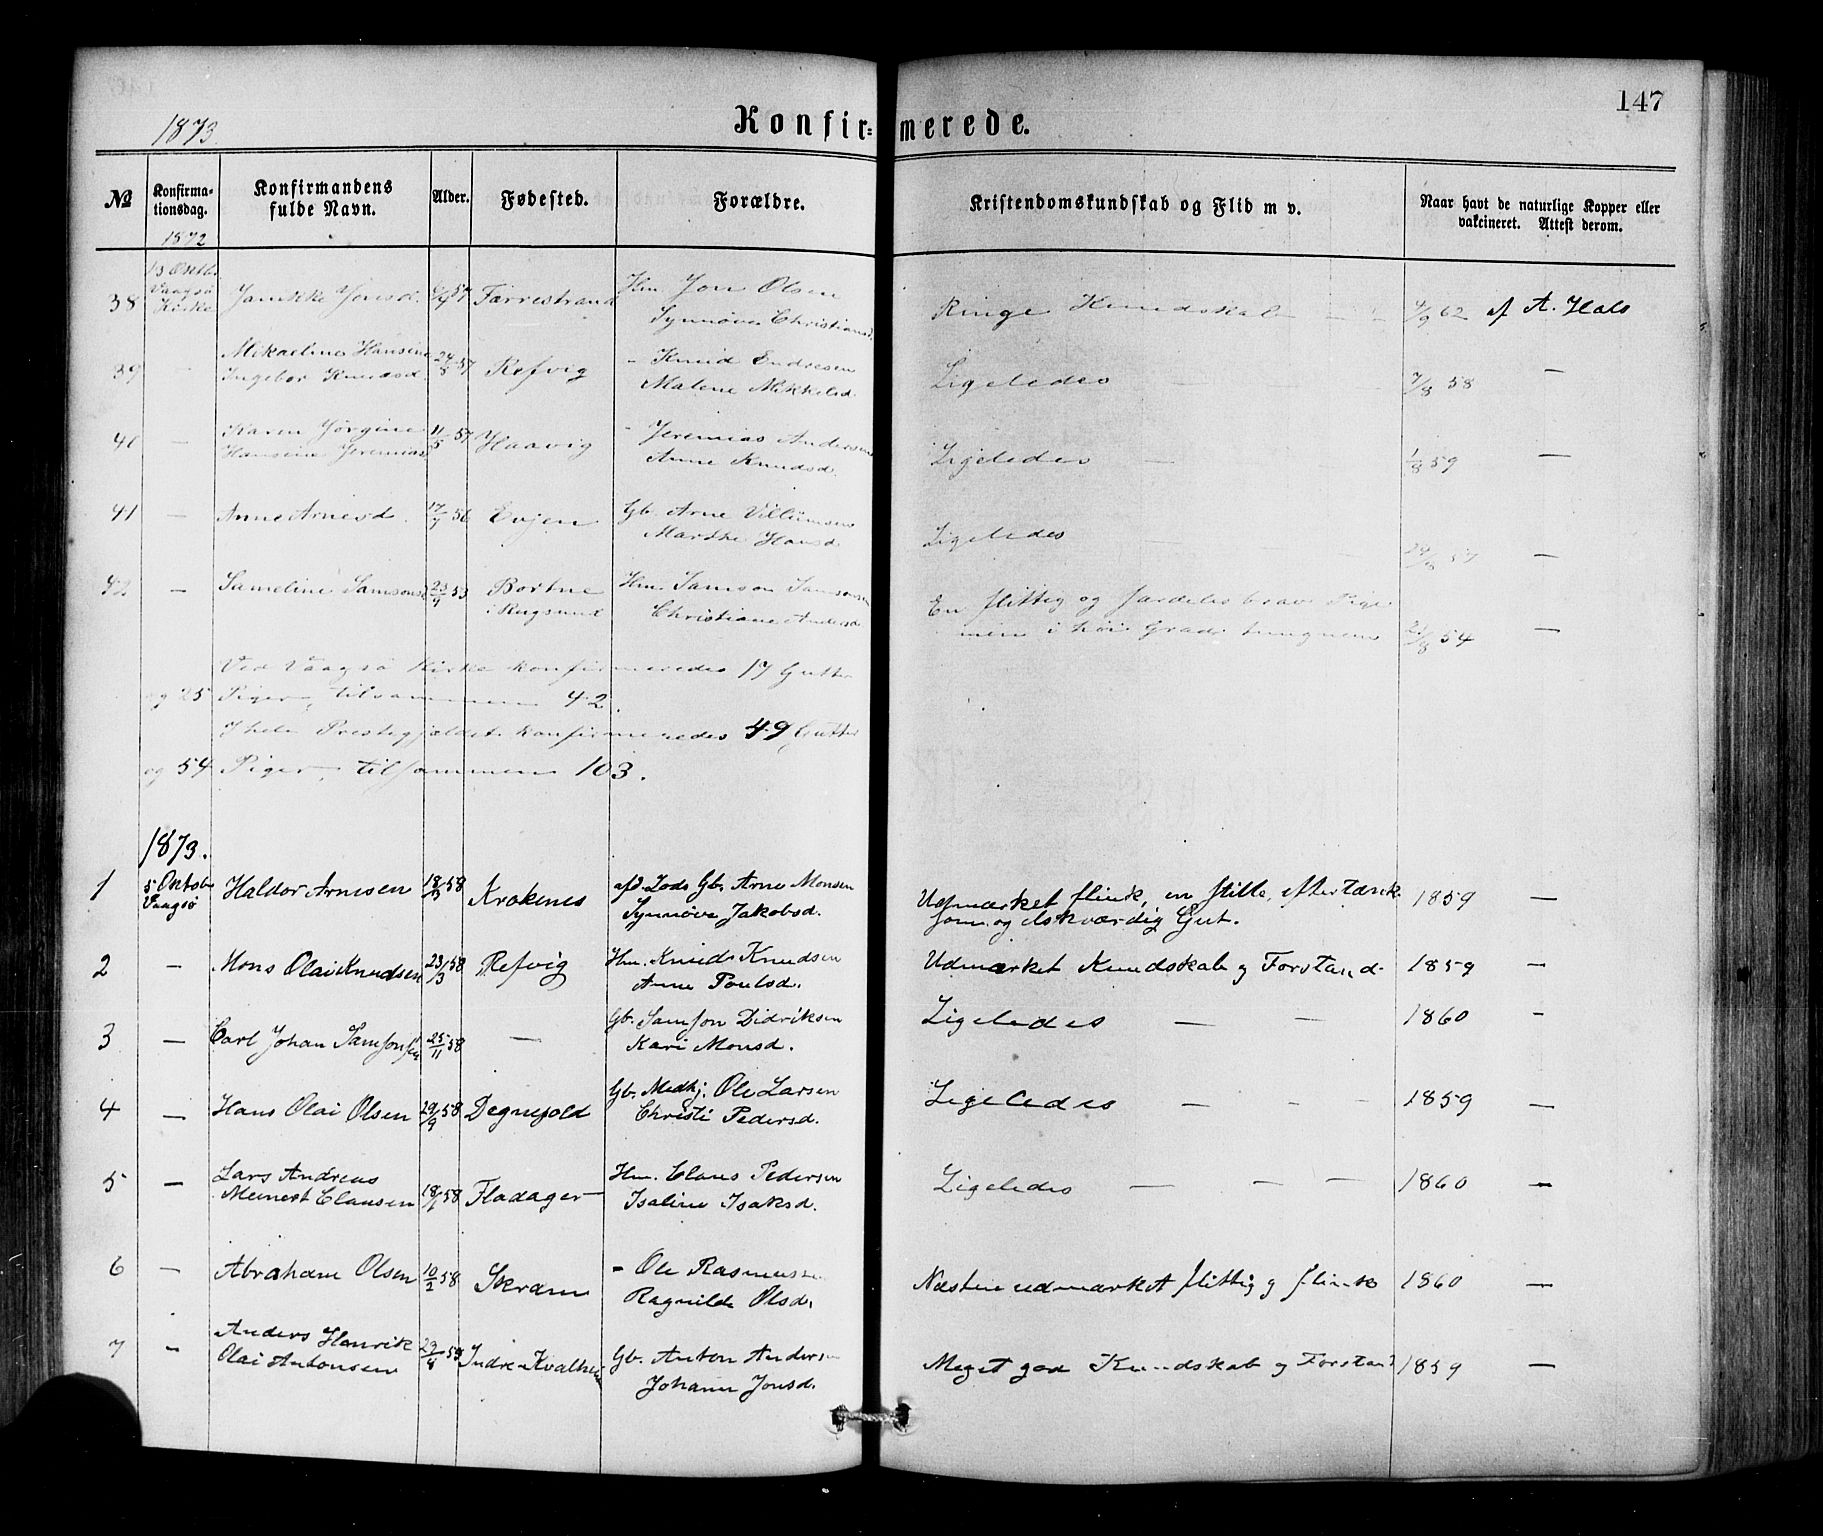 147
1873.
Konfir=merede.
№ Konfirma-tionsdag. Konfirmandens fulde Navn. Alder. Fødested. Forældre. Kristendomskundskab og Flid m v. Naar havt de naturlige Kopper eller vakcineret. Attest derom.
1872
13 Octb. Vaagsø Kirke
38 Janikke Jonsd. 57 Færrestrand Hm. Jon Olsen
Synnøve Christiansd. Ringe Kundskab — — 4/9 62 af A. Hals
39 — Mikaeline Hansine Ingebor Knudsd. 24/8 57 Refvig - Knud Endresen
Malene Mikkelsd. Ligeledes — 7/8 58 —
40 — Karen Jørgine Hansine Jeremias 11/5 57 Haavig - Jeremias Andersen
Anne Knudsd. Ligeledes — 1/8 59 —
41 — Anne Arnesd. 17/7 56 Evjen Gb. Arne Villumsen
Marthe Hansd. Ligeledes 24/8 57 —
42 — Sameline Samsonsd 23/9 53 Bortne i Rugsund Hm. Samson Samsonsen
Christiane Andersd. En flittig og særdeles brav Pige
men i høi Grad tungnem 21/8 54 —
Ved Vaagsø Kirke konfirmeredes 17 Gutter
og 25 Piger, tilsammen 42.
I hele Prestegjældet konfirmeredes 49 Gutter
og 54 Piger, tilsammen 103.
1873.
1 5 Octob. Vaagsø Haldor Arnesen 18/3 58 Krokenes afd. Lods Gb. Arne Monsen
Synnøve Jakobsd. Udmærket flink, en stille, eftertænk
som og elskværdig Gut. 1859 —
2 — Mons Olai Knudsen 23/3 58 Refvig Hm. Knud Knudsen
Anne Poulsd. Udmærket Kundskab og Forstand. 1859 —
3 — Carl Johan Samsonsen 25/11 58 — Gb. Samson Didriksen
Kari Monsd. Ligeledes — — 1860 -
4 — Hans Olai Olsen 29/9 58 Degnepold Gb. Medhj. Ole Larsen
Christi Pedersd. Ligeledes — - — 1859 —
5 — Lars Andreas Meinert Clausen 18/1 58 Fladager Hm. Claus Pedersen
Isaline Isaksd. Ligeledes — — — 1860 —
6 — Abraham Olsen 10/2 58 Skram - Ole Rasmussen
Ragnilde Olsd. Næsten udmærket flittig og flink 1860 —
7 - Anders Henrik Olai Antonsen 29/8 58 Indre Kvalheim Gb. Anton Andersen
Johanne Jonsd. Meget god Kundskab og Forstand 1859 —